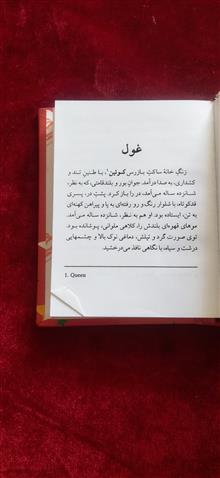 غول
زنگِ خانهٔ ساکتِ بازرس کوئین¹، با طنینِ تند و
کشداری، به صدا درآمد. جوانِ بور و بلندقامتی، که به نظر،
شانزده ساله می‌آمد، در را باز کرد. پشتِ در، پسری
قدکوتاه، با شلوار رنگ و رو رفته‌ای به پا و پیراهن کهنه‌ای
به تن، ایستاده بود. او هم به نظر، شانزده ساله می‌آمد.
موهای قهوه‌ای بلندش را، کلاهی ملوانی، پوشانده بود.
توی صورت گرد و تپلش، دماغی نوک بالا و چشمهایی
درشت و سیاه، با نگاهی نافذ می‌درخشید.
1. Queen